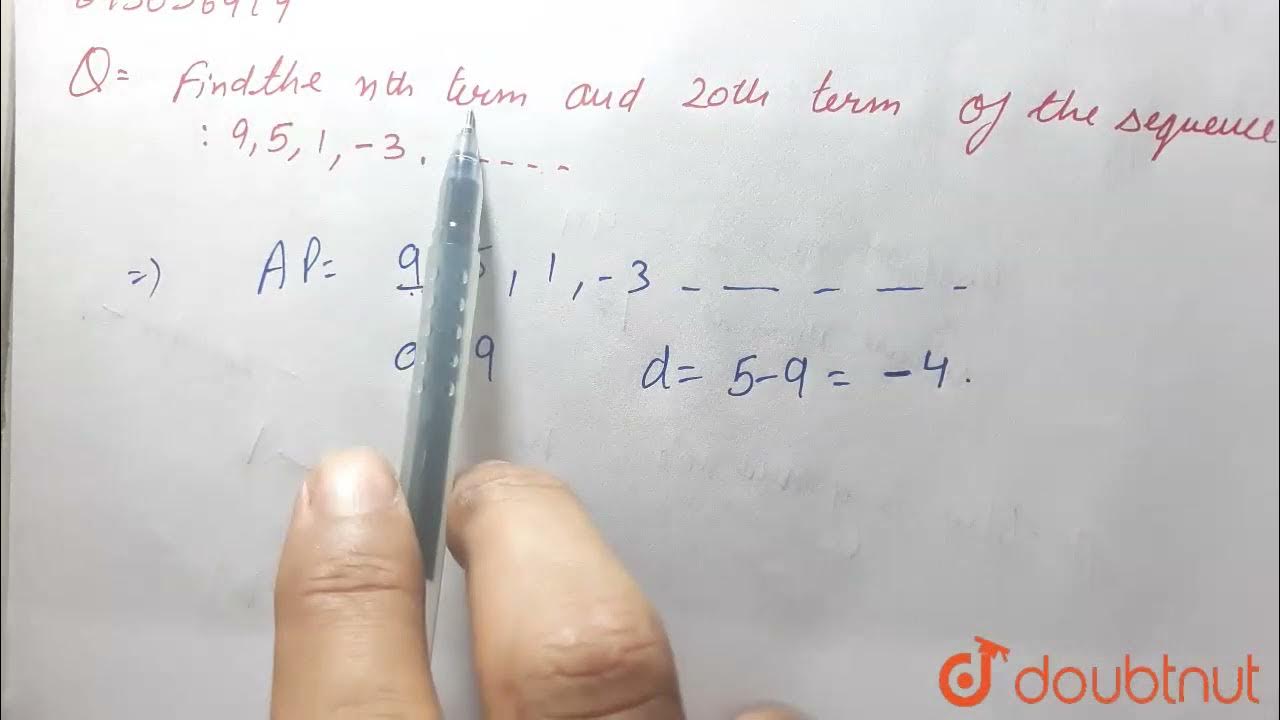 Q= Find the nth term and 20th term of the sequence
: 9, 5, 1, -3 . - - - - -
=) AP= 9, 5, 1, -3 - — - — -
9 d= 5-9= -4.
doubtnut